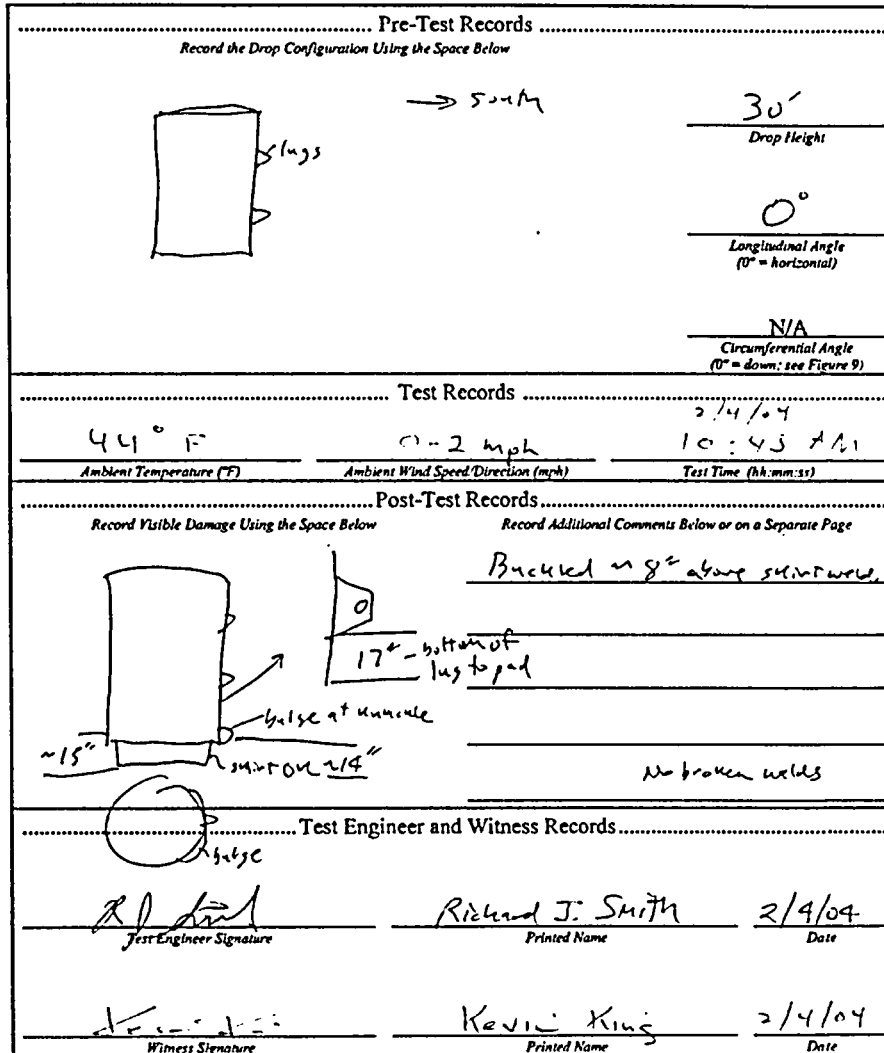 Pre-Test Records
Record the Drop Configuration Using the Space Below
→ South
lugs
30'
Drop Height
0°
Longitudinal Angle
(0° = horizontal)
N/A
Circumferential Angle
(0° = down; see Figure 9)
Test Records
2/4/04
44° F
0-2 mph
10:43 AM
Ambient Temperature (°F)
Ambient Wind Speed/Direction (mph)
Test Time (hh:mm:ss)
Post-Test Records
Record Visible Damage Using the Space Below
Record Additional Comments Below or on a Separate Page
Buckled ~ 8" above skirt weld.
17" - bottom of
lug to pad
bulge at
~15"
skirt OK ~14"
No broken welds
Test Engineer and Witness Records
bulge
Richard J. Smith
2/4/04
Test Engineer Signature
Printed Name
Date
Kevin King
2/4/04
Witness Signature
Printed Name
Date